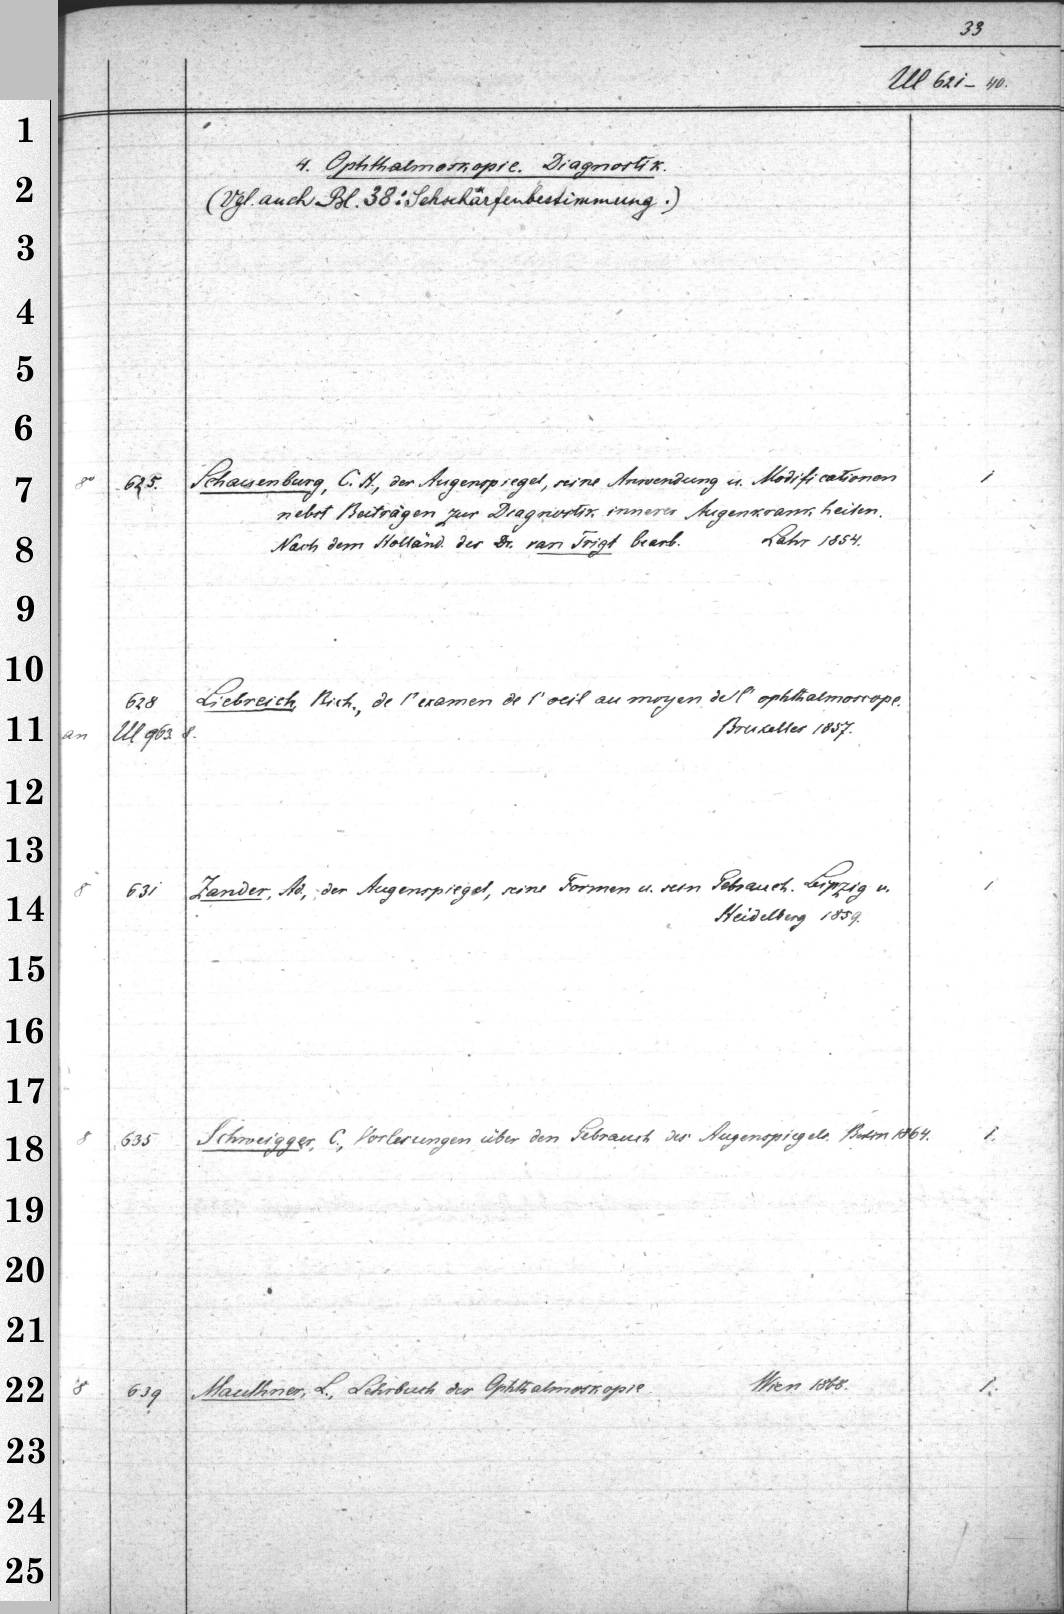 33
Ul 621-40.
4. Ophthalmoskopie. Diagnostik.
(Vgl. auch Bl. 38: Sehschärfenbestimmung.)
8° 625. Schauenburg, C. H., der Augenspiegel, seine Anwendung u. Modificationen 1
nebst Beiträgen zur Diagnostik innerer Augenkrankheiten.
Nach dem Holländ. des Dr. van Trigt bearb. Lahr 1854.
628 Liebreich, Rich., de l'examen de l'oeil au moyen de l'ophthalmoscope.
an Ul 963. 8. Bruxelles 1857.
8 631 Zander, Ad., der Augenspiegel, seine Formen u. sein Gebrauch. Leipzig u. 1
Heidelberg 1859.
8 635 Schweigger, C., Vorlesungen über den Gebrauch des Augenspiegels. Berlin 1864. 1.
8 639 Mauthner, L., Lehrbuch der Ophthalmoskopie. Wien 1868. 1.
1
2
3
4
5
6
7
8
9
10
11
12
13
14
15
16
17
18
19
20
21
22
23
24
25